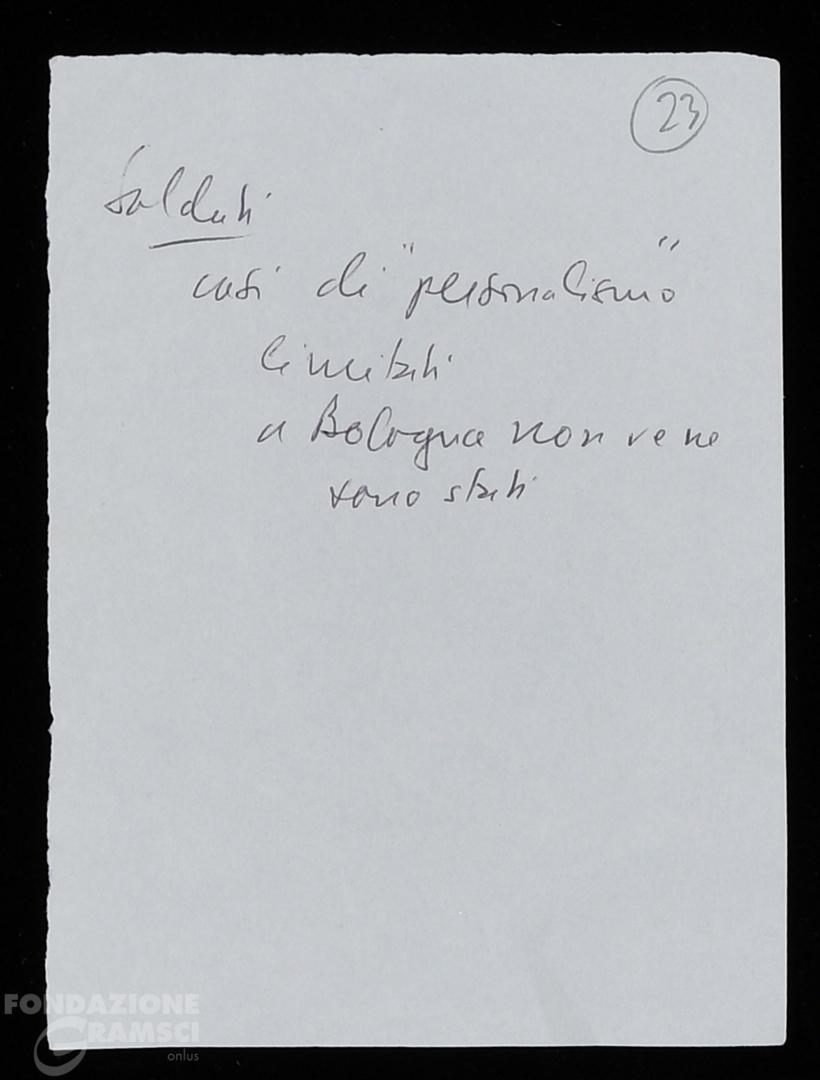 23
Soldati
casi di "personalismo"
limitati
a Bologna non ve ne
sono stati
FONDAZIONE
GRAMSCI
onlus